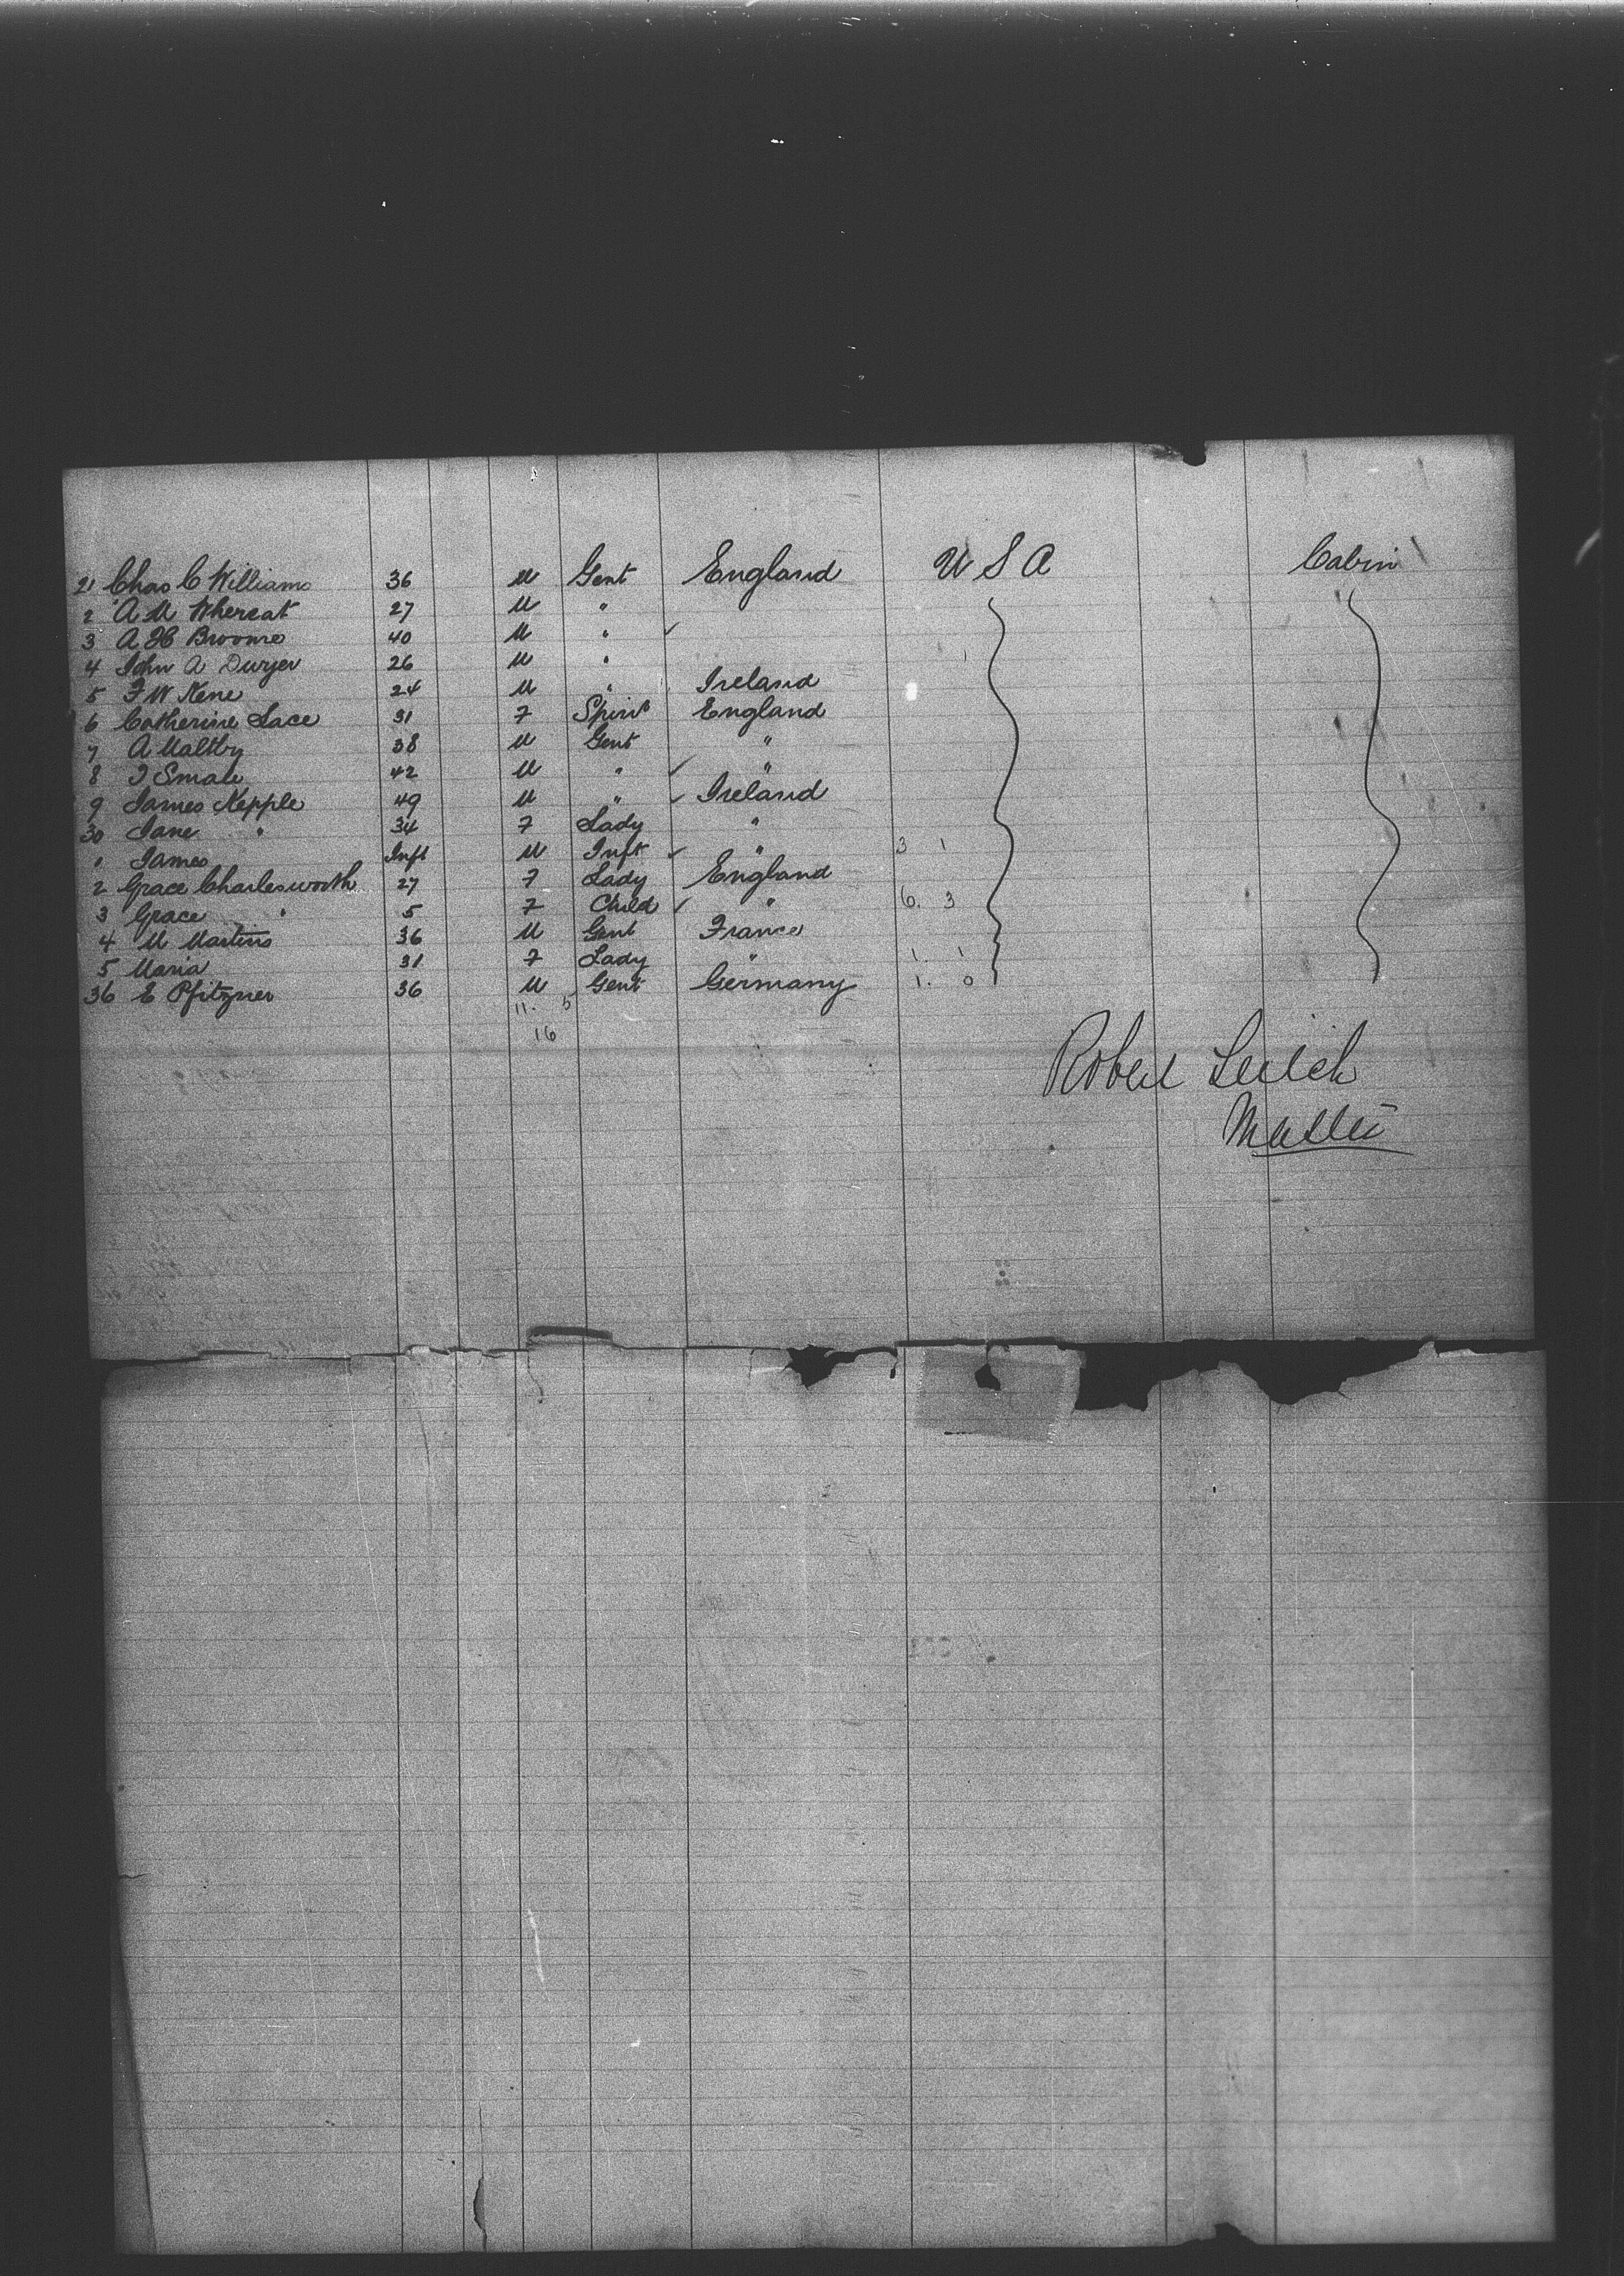 21 Chas C Williams 36 M Gent England U S A Cabin
2 A M Whereat 27 M "
3 A H Broome 40 M " ✓
4 John A Dwyer 26 M "
5 F W Kene 24 M " Ireland
6 Catherine Lace 31 F Spinr England
7 A Maltby 38 M Gent "
8 J Smale 42 M " ✓ "
9 James Kepple 49 M " ✓ Ireland
30 Jane " 34 F Lady "
" James Inft M Inft ✓ " 3 1
2 Grace Charlesworth 27 F Lady England
3 Grace " 5 F Child ✓ " 6. 3
4 M Martins 36 M Gent France
5 Maria 31 F Lady " 1. 1
36 E Pfitzner 36 M Gent Germany 1. 0
11. 5
16
Robert Leitch
Master